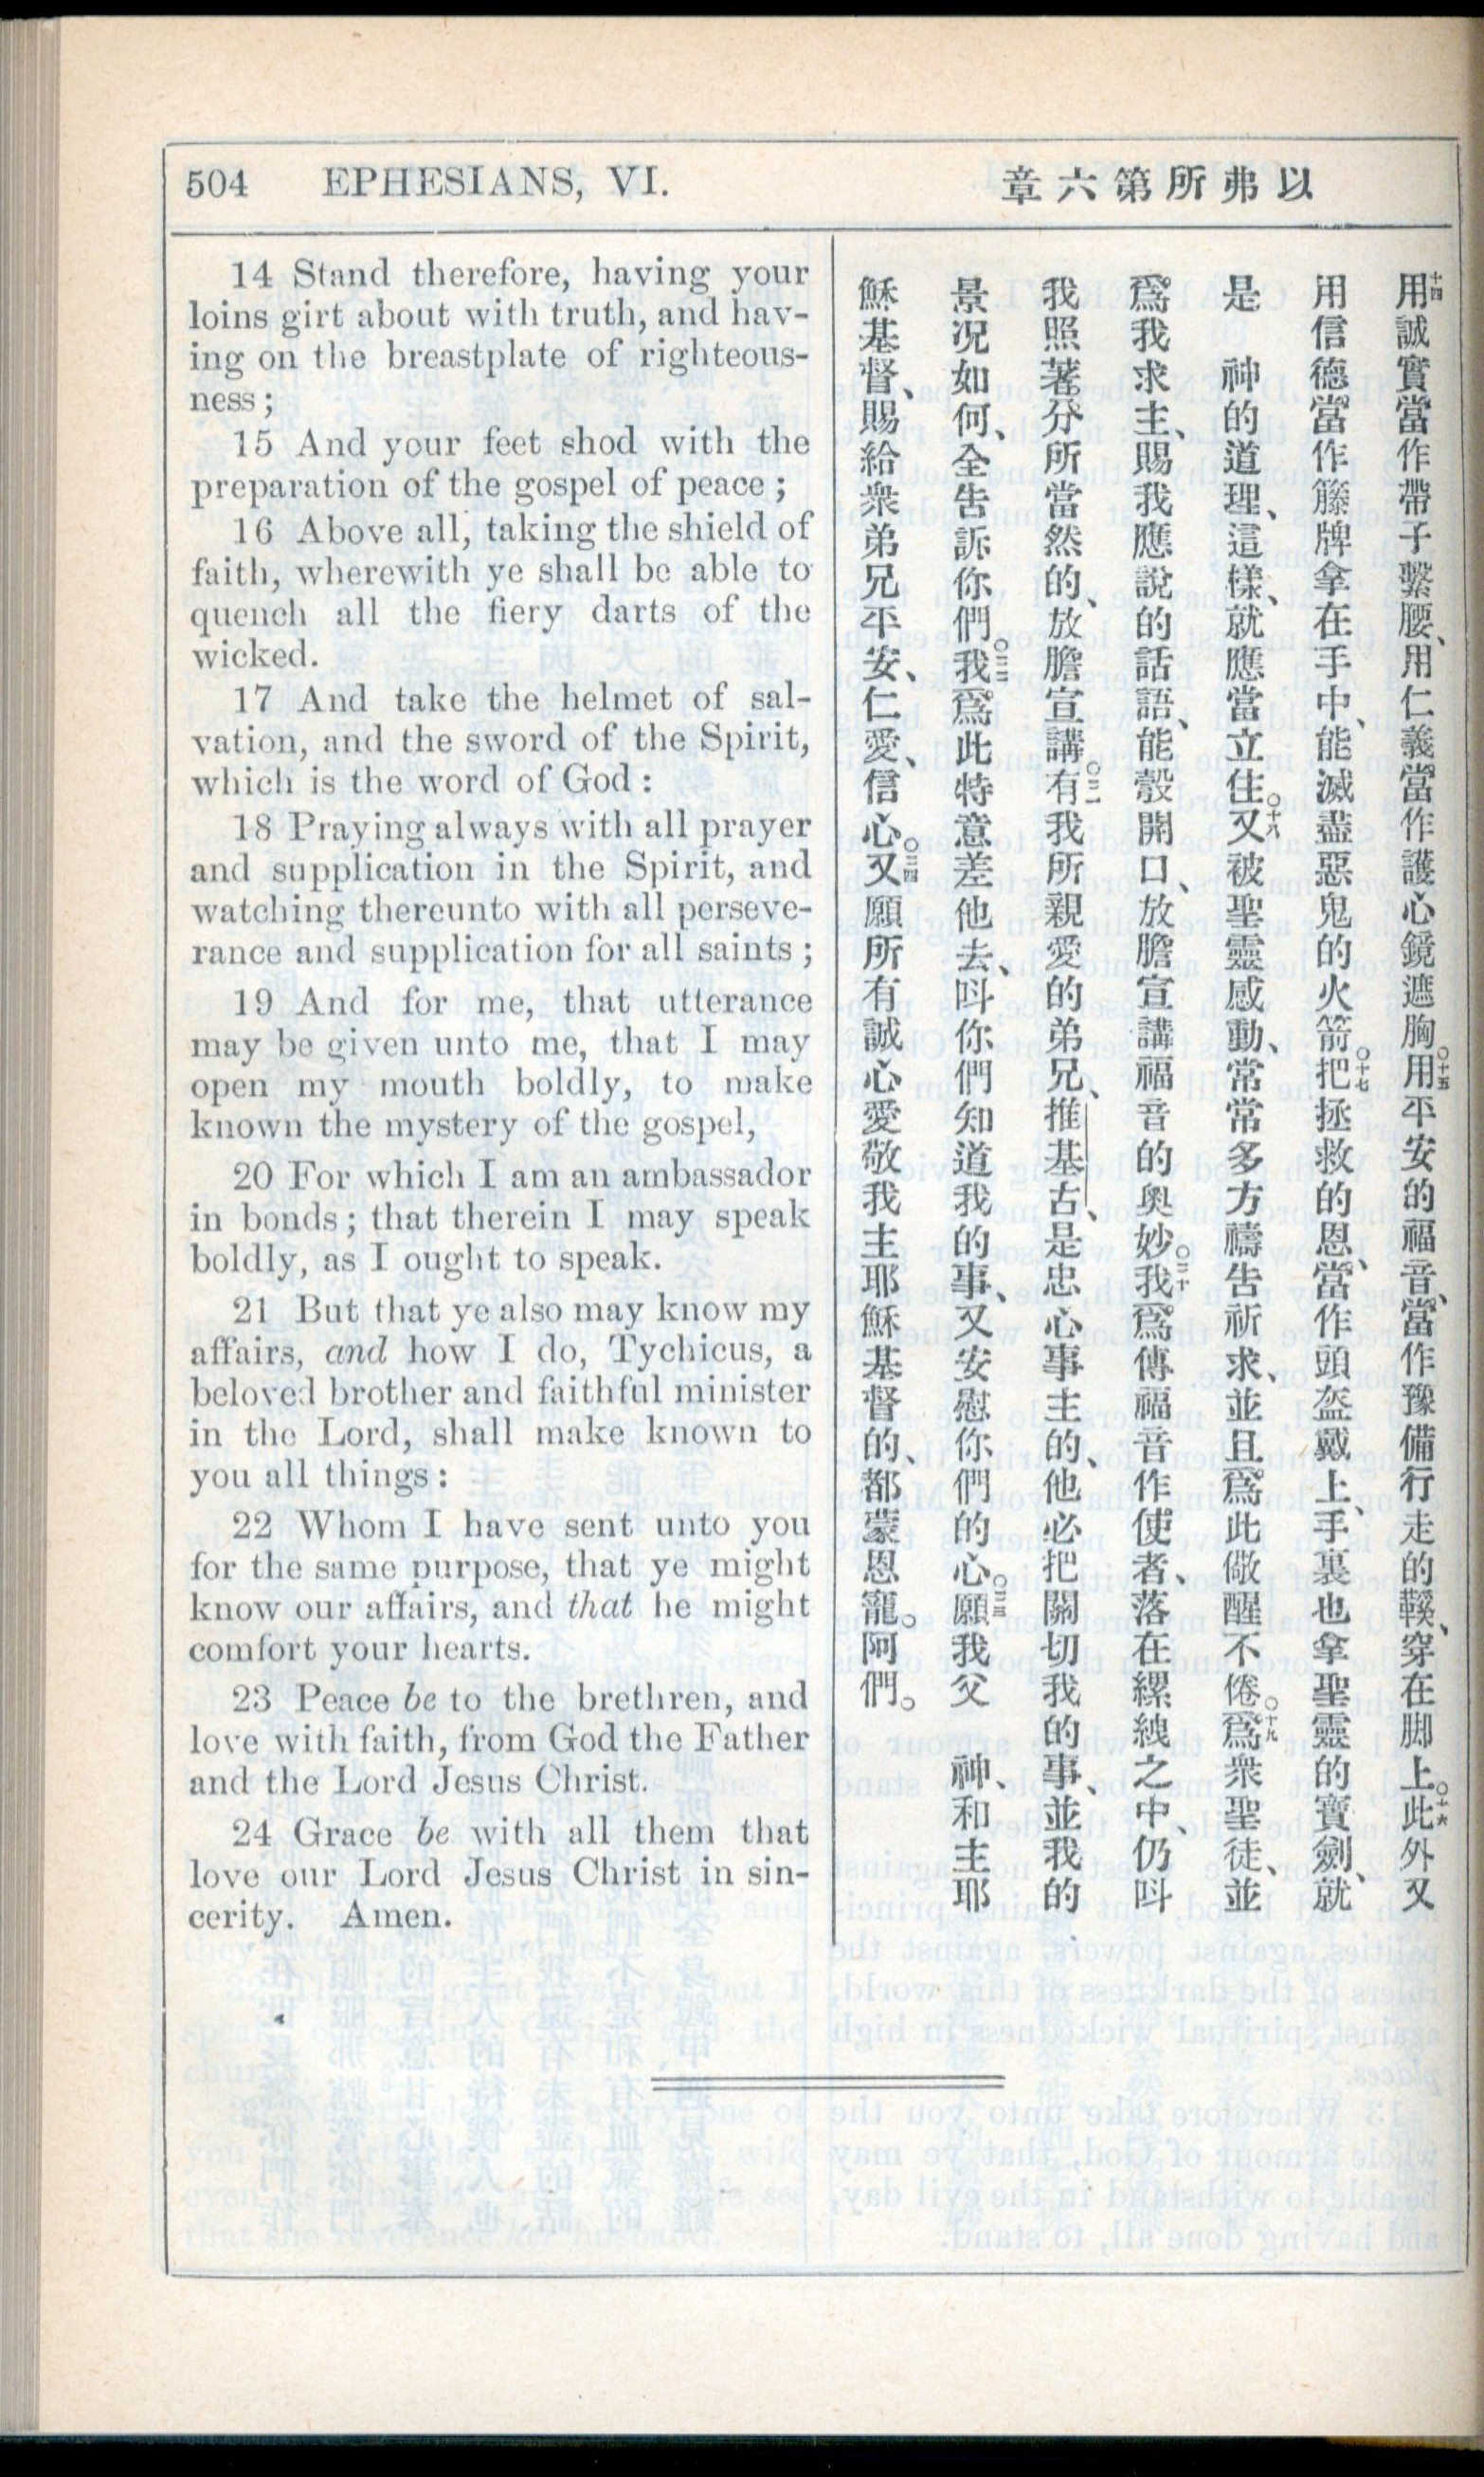 504 EPHESIANS, VI.
以弗所第六章
14 Stand therefore, having your
loins girt about with truth, and hav-
ing on the breastplate of righteous-
ness;
15 And your feet shod with the
preparation of the gospel of peace;
16 Above all, taking the shield of
faith, wherewith ye shall be able to
quench all the fiery darts of the
wicked.
17 And take the helmet of sal-
vation, and the sword of the Spirit,
which is the word of God:
18 Praying always with all prayer
and supplication in the Spirit, and
watching thereunto with all perseve-
rance and supplication for all saints;
19 And for me, that utterance
may be given unto me, that I may
open my mouth boldly, to make
known the mystery of the gospel,
20 For which I am an ambassador
in bonds; that therein I may speak
boldly, as I ought to speak.
21 But that ye also may know my
affairs, and how I do, Tychicus, a
beloved brother and faithful minister
in the Lord, shall make known to
you all things:
22 Whom I have sent unto you
for the same purpose, that ye might
know our affairs, and that he might
comfort your hearts.
23 Peace be to the brethren, and
love with faith, from God the Father
and the Lord Jesus Christ.
24 Grace be with all them that
love our Lord Jesus Christ in sin-
cerity. Amen.
十四用誠實當作帶子繫腰、用仁義當作護心鏡遮胸○十五用平安的福音、當作豫備行走的鞵、穿在脚上○十六此外又
用信德當作籐牌拿在手中、能滅盡惡鬼的火箭○十七把拯救的恩、當作頭盔戴上、手裏也拿聖靈的寶劍、就
是 神的道理、這樣、就應當立住○十八又被聖靈感動、常常多方禱告祈求、並且爲此儆醒不倦○十九爲衆聖徒、並
爲我求主、賜我應說的話語、能彀開口、放膽宣講福音的奧妙○二十我爲傳福音作使者、落在縲絏之中、仍呌
我照著分所當然的、放膽宣講○二一有我所親愛的弟兄、推基古、是忠心事主的、他必把關切我的事、並我的
景况如何、全告訴你們○二二我爲此特意差他去、呌你們知道我的事、又安慰你們的心○二三願我父 神、和主耶
穌基督、賜給衆弟兄平安、仁愛、信心○二四又願所有誠心愛敬我主耶穌基督的、都蒙恩寵。阿們。